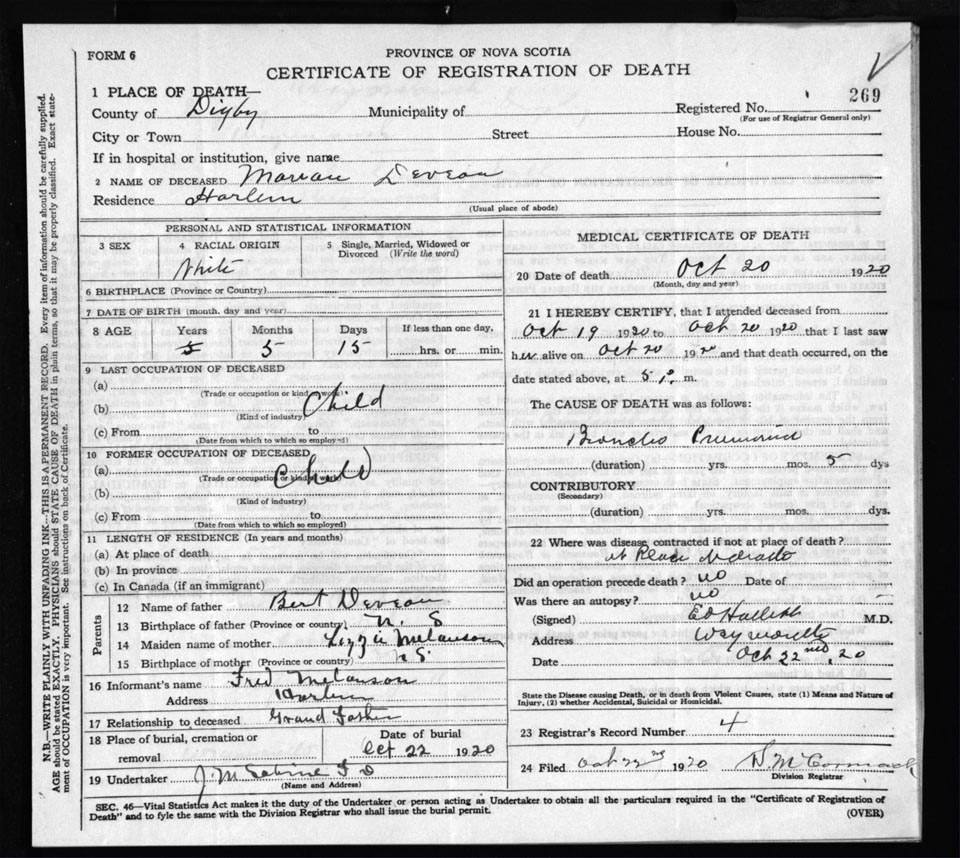 FORM 6
PROVINCE OF NOVA SCOTIA
CERTIFICATE OF REGISTRATION OF DEATH
269
1 PLACE OF DEATH—
County of Digby Municipality of Registered No.
(For use of Registrar General only)
City or Town Street House No.
If in hospital or institution, give name
2 NAME OF DECEASED Marian Deveau
Residence Harlem
(Usual place of abode)
PERSONAL AND STATISTICAL INFORMATION
3 SEX 4 RACIAL ORIGIN 5 Single, Married, Widowed or Divorced (Write the word)
White
6 BIRTHPLACE (Province or Country)
7 DATE OF BIRTH (month, day and year)
8 AGE Years Months Days If less than one day,
5 5 15 hrs. or min.
9 LAST OCCUPATION OF DECEASED
(a)
(Trade or occupation or kind of work)
Child
(b)
(Kind of industry)
(c) From to
(Date from which to which so employed)
10 FORMER OCCUPATION OF DECEASED
(a) Child
(Trade or occupation or kind of work)
(b)
(Kind of industry)
(c) From to
(Date from which to which so employed)
11 LENGTH OF RESIDENCE (In years and months)
(a) At place of death
(b) In province
(c) In Canada (if an immigrant)
Parents
12 Name of father Bert Deveau
13 Birthplace of father (Province or country) N. S
14 Maiden name of mother Lizzie Melanson
15 Birthplace of mother (Province or country) N S
16 Informant's name Fred Melanson
Address Harlem
17 Relationship to deceased Grand Father
18 Place of burial, cremation or removal Date of burial
Oct 22 1920
19 Undertaker J. M Sabine
(Name and Address)
MEDICAL CERTIFICATE OF DEATH
20 Date of death Oct 20 1920
(Month, day and year)
21 I HEREBY CERTIFY, that I attended deceased from
Oct 19 1920 to Oct 20 1920 that I last saw
her alive on Oct 20 1920 and that death occurred, on the
date stated above, at 5 P. m.
The CAUSE OF DEATH was as follows:
Broncho Pneumonia
(duration) yrs. mos. 5 dys
CONTRIBUTORY
(Secondary)
(duration) yrs. mos. dys.
22 Where was disease contracted if not at place of death?
at Place
Did an operation precede death? no Date of
Was there an autopsy? no
(Signed) M.D.
Address Weymouth
Date Oct 22nd, 20
State the Disease causing Death, or in death from Violent Causes, state (1) Means and Nature of
Injury, (2) whether Accidental, Suicidal or Homicidal.
23 Registrar's Record Number 4
24 Filed Oct 22nd 1920 McCormack
Division Registrar
SEC. 46—Vital Statistics Act makes it the duty of the Undertaker or person acting as Undertaker to obtain all the particulars required in the "Certificate of Registration of
Death" and to fyle the same with the Division Registrar who shall issue the burial permit. (OVER)
N.B.—WRITE PLAINLY WITH UNFADING INK—THIS IS A PERMANENT RECORD. Every item of information should be carefully supplied.
AGE should be stated EXACTLY. PHYSICIANS should STATE CAUSE OF DEATH in plain terms, so that it may be properly classified. Exact statement of OCCUPATION is very important. See instructions on back of Certificate.